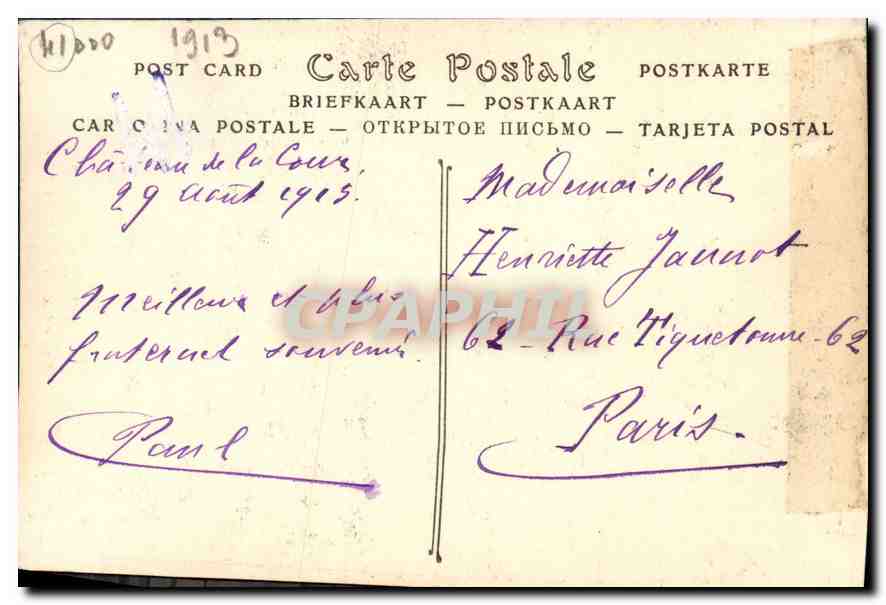 41000 1913
POST CARD Carte Postale POSTKARTE
BRIEFKAART — POSTKAART
CARTOLINA POSTALE — ОТКРЫТОЕ ПИСЬМО — TARJETA POSTAL
Château de la Cour,
29 août 1913.
Meilleur et plus
fraternel souvenir
Paul
Mademoiselle
Henriette Jaunot
62 - Rue Tiquetonne - 62
Paris.
CPAPHIL